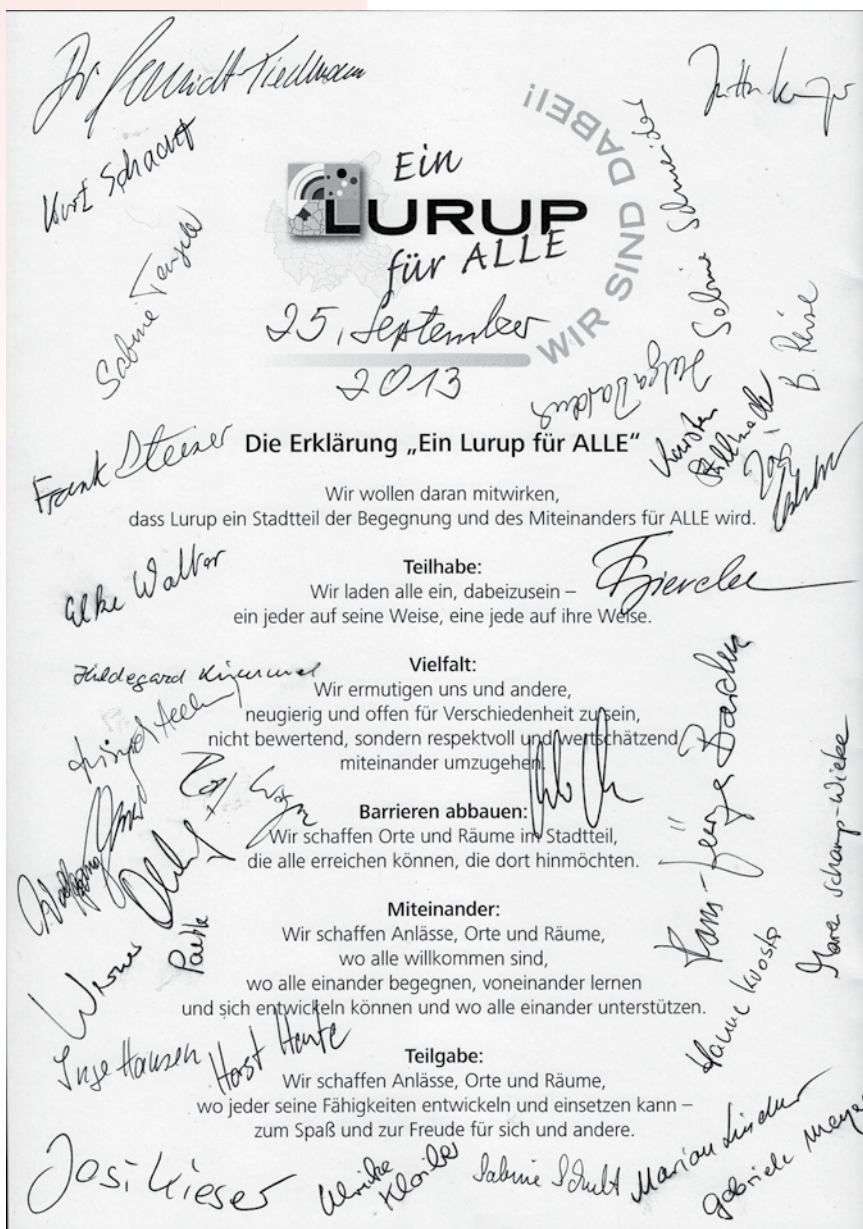 Dr. Schmidt-Tiedemann
Kurt Schacht
Ein
LURUP
für ALLE
WIR SIND DABEI!
Sabine Schneider
25. September
2013
B.
Sabine
Frank Steiner
Die Erklärung „Ein Lurup für ALLE“
Wir wollen daran mitwirken,
dass Lurup ein Stadtteil der Begegnung und des Miteinanders für ALLE wird.
Elke Walter
Teilhabe:
Wir laden alle ein, dabeizusein –
ein jeder auf seine Weise, eine jede auf ihre Weise.
Hildegard
Vielfalt:
Wir ermutigen uns und andere,
neugierig und offen für Verschiedenheit zu sein,
nicht bewertend, sondern respektvoll und wertschätzend
miteinander umzugehen.
Barrieren abbauen:
Wir schaffen Orte und Räume im Stadtteil,
die alle erreichen können, die dort hinmöchten.
Hans-Jürgen
Miteinander:
Wir schaffen Anlässe, Orte und Räume,
wo alle willkommen sind,
wo alle einander begegnen, voneinander lernen
und sich entwickeln können und wo alle einander unterstützen.
Werner
Inge Hansen
Horst Hente
Teilgabe:
Wir schaffen Anlässe, Orte und Räume,
wo jeder seine Fähigkeiten entwickeln und einsetzen kann –
zum Spaß und zur Freude für sich und andere.
Josi Kieser
Ulrike Kloiber
Sabine Schult
Marion Lindner
Gabriele Meyer